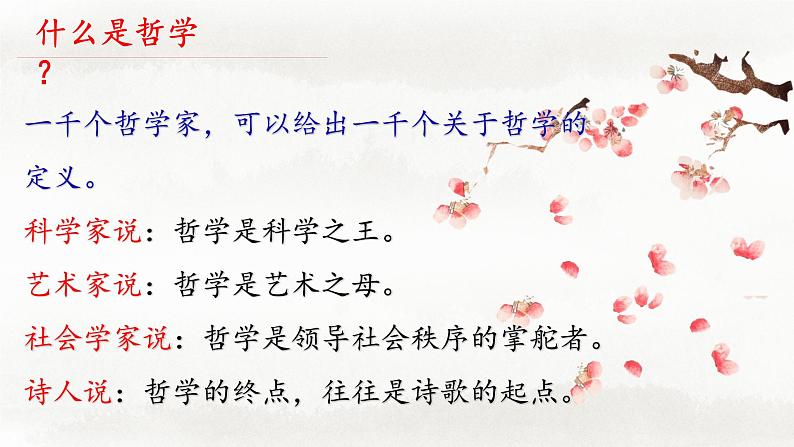 什么是哲学
？
一千个哲学家，可以给出一千个关于哲学的
定义。
科学家说：哲学是科学之王。
艺术家说：哲学是艺术之母。
社会学家说：哲学是领导社会秩序的掌舵者。
诗人说：哲学的终点，往往是诗歌的起点。